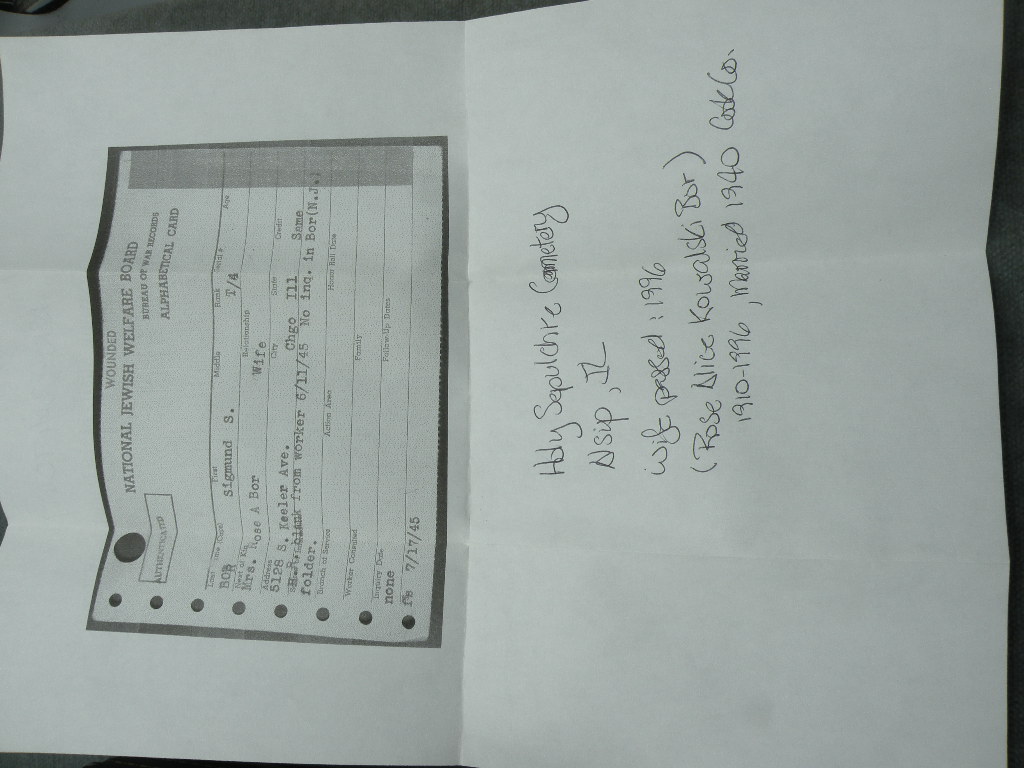 WOUNDED
NATIONAL JEWISH WELFARE BOARD
BUREAU OF WAR RECORDS
ALPHABETICAL CARD
AUTHENTICATED
First Middle Rank Serial # Age
BOR Sigmund S. T/4
Next of Kin Relationship
Mrs. Rose A Bor Wife
Address City State Credit
5128 S. Keeler Ave. Chgo Ill Same
from worker 6/11/45 No inq. in Bor(N.J.)
folder.
Branch of Service Action Area Honor Roll Data
Worker Assigned Family
Follow-Up Dates
none
7/17/45
Holy Sepulchre Cemetery
Alsip, IL
wife passed: 1996
(Rose Alice Kowalski Bor)
1910-1996, married 1940 Cook Co.